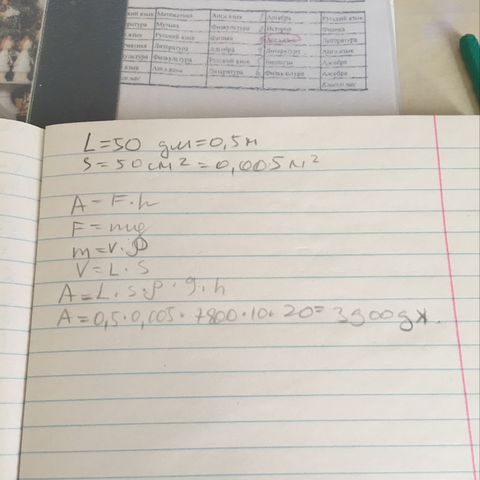 ский язык Математика Англ язык Алгебра Русский язык
ература Музыка Физкультура История Физика
язык Русский язык Физика Литература
ематика Литература Алгебра Литература Англ язык
культура Физкультура Русский язык Биология Алгебра
язык Англ язык Литература Физкультура Алгебра
Класс час
L=50 дм=0,5м
S=50см²=0,005м²
A=F·h
F=mg
m=V·ρ
V=L·S
A=L·s·ρ·g·h
A=0,5·0,005·7800·10·20=3900дж.